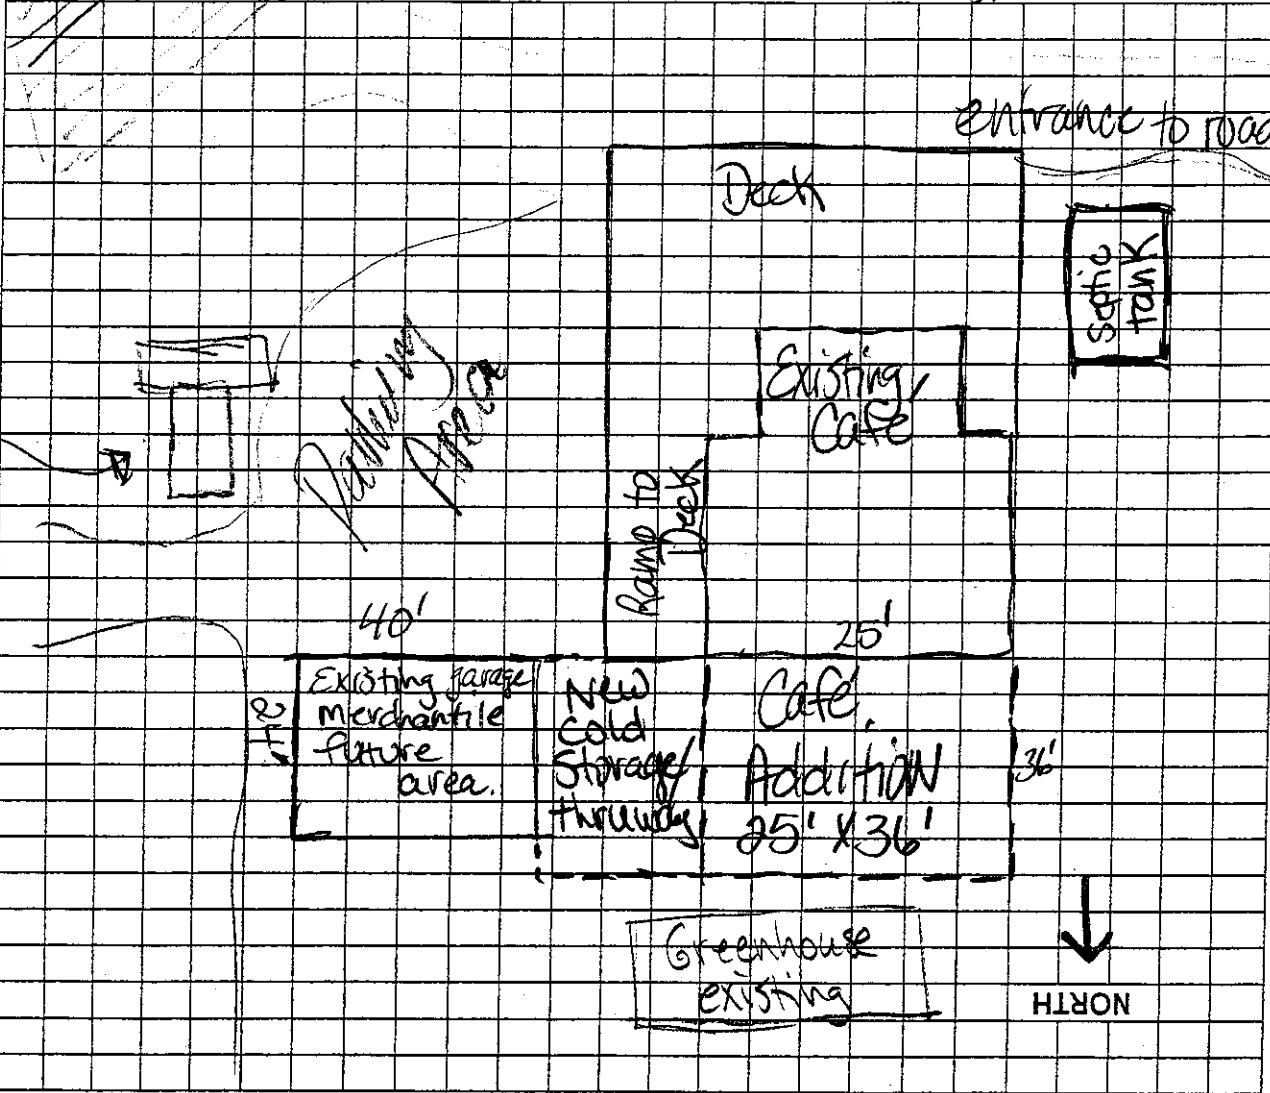 entrance to road
Deck
Septic
tank
Existing
Cafe
Parking
Area
Ramp to
Deck
40'
25'
Existing garage
merchantile
future
area.
New
cold
Storage/
thruway
Café
Addition
25' X 36'
36'
Greenhouse
existing
NORTH